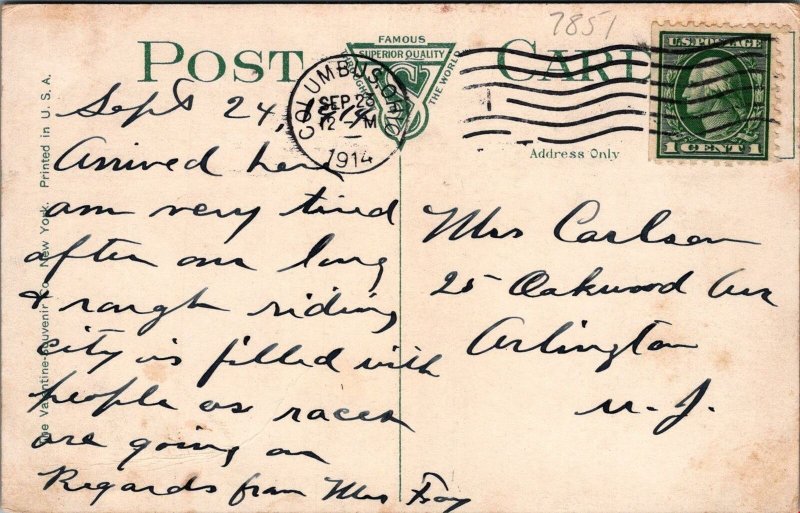 7851
POST CARD
FAMOUS
SUPERIOR QUALITY
THE WORLD
U.S. POSTAGE
1 CENT 1
COLUMBUS, OHIO
SEP 25
12 - M
1914
Address Only
The Valentine-Souvenir Co. New York. Printed in U. S. A.
Sept 24,
Arrived here
am very tired
after our long
& rough riding
city is filled with
people as races
are going on
Regards from Mrs
Mrs Carlson
25 Oakwood Ave
Arlington
N. J.